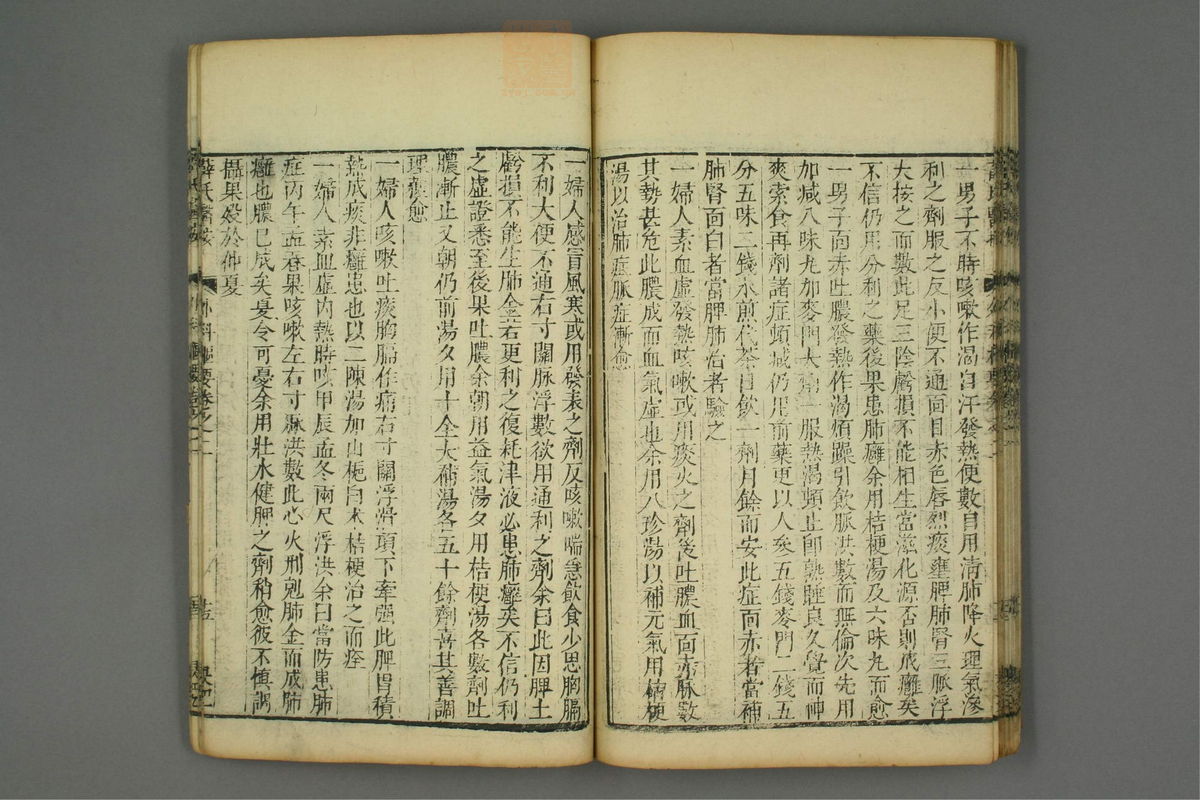 一男子不時咳嗽作渴自汗發熱便數自用清肺降火理氣滲
利之劑服之反小便不通面目赤色唇烈痰壅脾肺腎三脈浮
大按之而數此足三陰虧損不能相生當滋化源否則成癰矣
不信仍用分利之藥後果患肺癰余用桔梗湯及六味丸而愈
一男子面赤吐膿發熱作渴煩躁引飲脈洪數而無倫次先用
加減八味丸加麥門大劑一服熱渴頓止即熟睡良久覺而神
爽索食再劑諸症頓減仍用前藥更以人參五錢麥門二錢五
分五味二錢水煎代茶日飲一劑月餘而安此症面赤者當補
肺腎面白者當脾肺治者驗之
一婦人素血虛發熱咳嗽或用痰火之劑後吐膿血面赤脈數
其勢甚危此膿成而血氣虛也余用八珍湯以補元氣用桔梗
湯以治肺症脈症漸愈
一婦人感冒風寒或用發表之劑反咳嗽喘急飲食少思胸膈
不利大便不通右寸關脈浮數欲用通利之劑余曰此因脾土
虧損不能生肺金若更利之復耗津液必患肺癰矣不信仍利
之虛證悉至後果吐膿余朝用益氣湯夕用桔梗湯各數劑吐
膿漸止又朝仍前湯夕用十全大補湯各五十餘劑喜其善調
理獲愈
一婦人咳嗽吐痰胸膈作痛右寸關浮滑項下牽强此脾胃積
熱成痰非癰患也以二陳湯加山梔白朮桔梗治之而痊
一婦人素血虛內熱時咳甲辰孟冬兩尺浮洪余曰當防患肺
症丙午孟春果咳嗽左右寸脈洪數此心火刑剋肺金而成肺
癰也膿已成矣夏令可憂余用壯水健脾之劑稍愈彼不慎調
攝果歿於仲夏
薛氏醫案 外科樞要卷之二